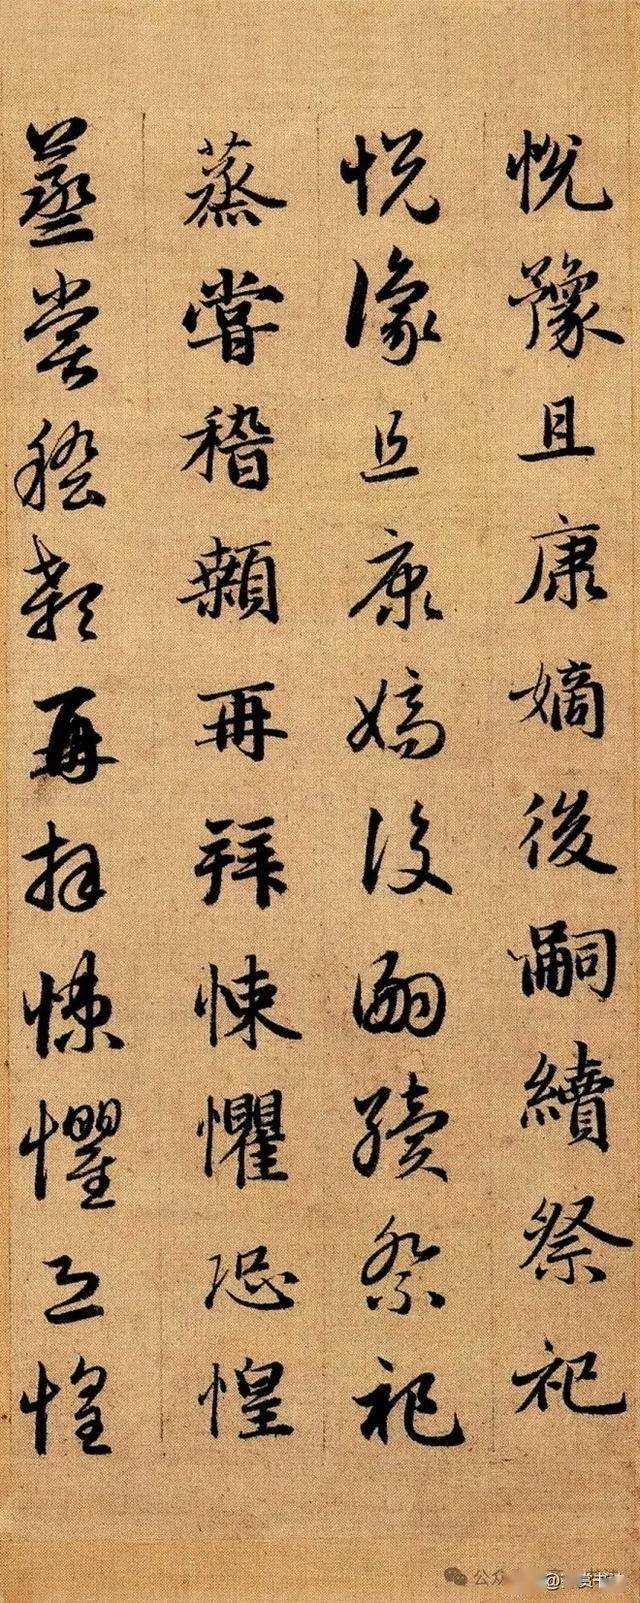 悅豫且康嫡後嗣續祭祀
悅豫且康嫡後嗣續祭祀
蒸嘗稽顙再拜悚懼恐惶
蒸嘗稽顙再拜悚懼恐惶
公众
@
赏书法